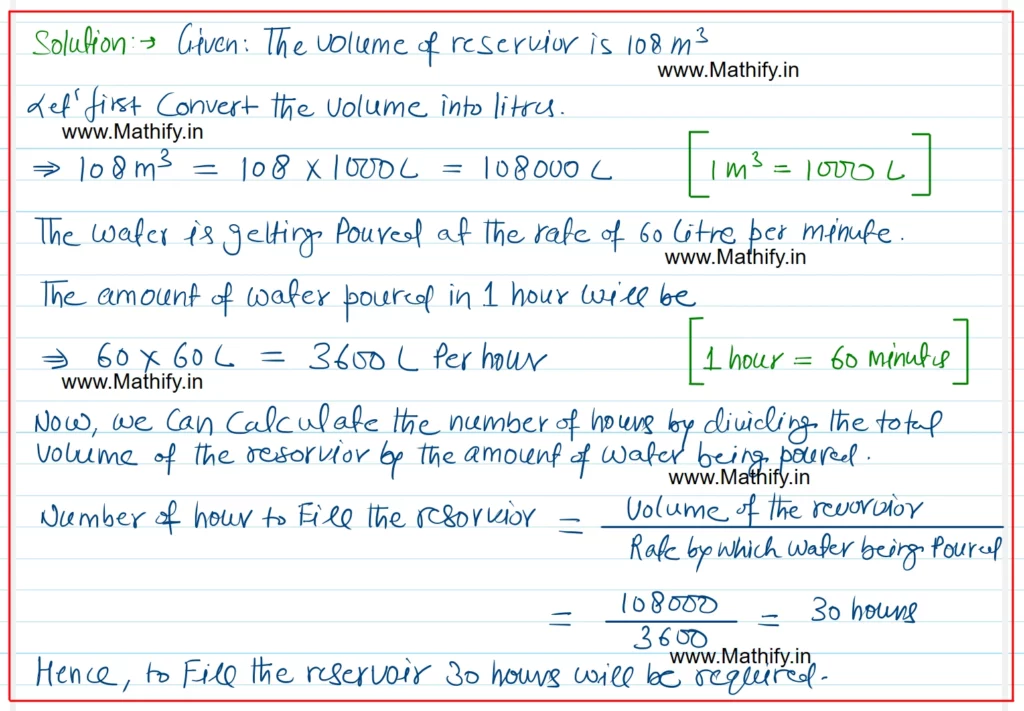 Solution:→ Given: The volume of reservior is 108 m³
www.Mathify.in
Let' first Convert the volume into litres.
www.Mathify.in
⇒ 108 m³ = 108 × 1000 L = 108000 L [1 m³ = 1000 L]
The water is getting Poured at the rate of 60 litre per minute.
www.Mathify.in
The amount of water poured in 1 hour will be
⇒ 60 × 60 L = 3600 L Per hour [1 hour = 60 minutes]
www.Mathify.in
Now, we Can Calculate the number of hours by dividing the total
volume of the resorvior by the amount of water being poured.
www.Mathify.in
Number of hour to Fill the resorvior = Volume of the revorvior
Rate by which water being Poured
= 108000 / 3600 = 30 hours
www.Mathify.in
Hence, to Fill the reservoir 30 hours will be required.